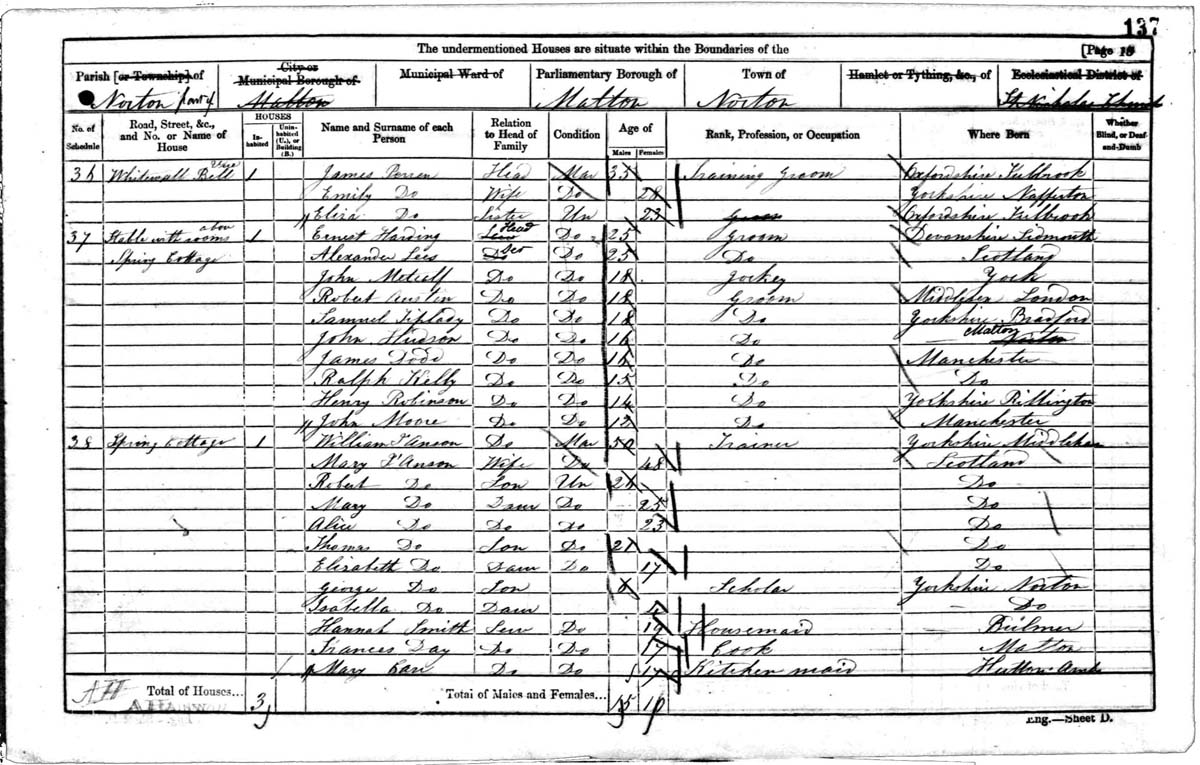 137
The undermentioned Houses are situate within the Boundaries of the [Page 18
Parish [or Township] of City or Municipal Borough of Municipal Ward of Parliamentary Borough of Town of Hamlet or Tything, &c., of Ecclesiastical District of
Norton part of Malton Malton Norton St Nicholas
No. of Schedule Road, Street, &c., and No. or Name of House HOUSES Inhabited Uninhabited (U.), or Building (B.) Name and Surname of each Person Relation to Head of Family Condition Age of Males Females Rank, Profession, or Occupation Where Born Whether Blind, or Deaf-and-Dumb
36 Whitewall 1 James Perren Head Mar 35 Training Groom Oxfordshire Fulbrook
Emily Do Wife Do 28 Yorkshire Nafferton
Eliza Do Sister Un 23 Oxfordshire Fulbrook
37 Stable with rooms above 1 Ernest Harding Head Do 25 Groom Devonshire Sidmouth
Spring Cottage Alexander Lees Do 25 Do Scotland
John Metcalf Do Do 18 Jockey York
Robert Austin Do Do 18 Groom Middlesex London
Samuel Tiplady Do Do 18 Do Yorkshire Bradford
John Hudson Do Do 16 Do Malton
James Dodd Do Do 16 Do Manchester
Ralph Kelly Do Do 15 Do Do
Henry Robinson Do Do 14 Do Yorkshire Rillington
John Moore Do Do 12 Do Manchester
38 Spring Cottage 1 William I'Anson Do Mar 50 Trainer Yorkshire Middleham
Mary I'Anson Wife Do 48 Scotland
Robert Do Son Un Do
Mary Do Daur Do 25 Do
Alice Do Do Do 23 Do
Thomas Do Son Do 21 Do
Elizabeth Do Daur Do 17 Do
George Do Son Scholar Yorkshire Norton
Isabella Do Daur Do
Hannah Smith Serv Do 19 Housemaid Bulmer
Frances Day Do Do 17 Cook Malton
Mary Do Do 17 Kitchen maid Hutton
Total of Houses... 3 Total of Males and Females... 15 10
Eng.—Sheet D.